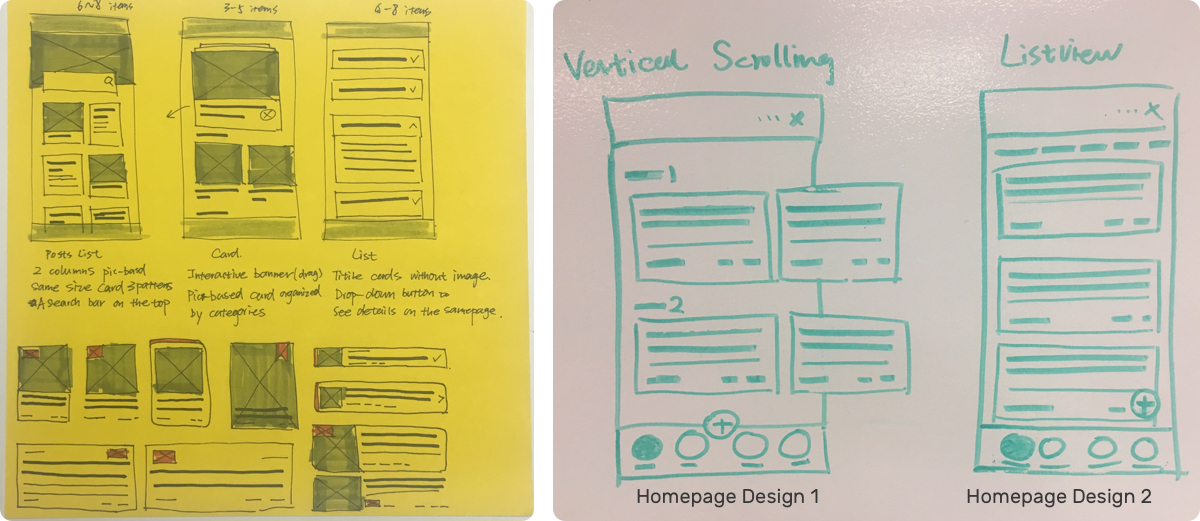 6~8 items
3-5 items
6-8 items
Posts List
2 columns pic-band
same size card 3 pattens
A search bar on the top
Card.
Interactive banner (drag)
Pic-based card organized
by categories
List
Titile cards without image.
Drop-down button to
See details on the samepage.
Vertical Scrolling
1
2
Homepage Design 1
ListView
Homepage Design 2